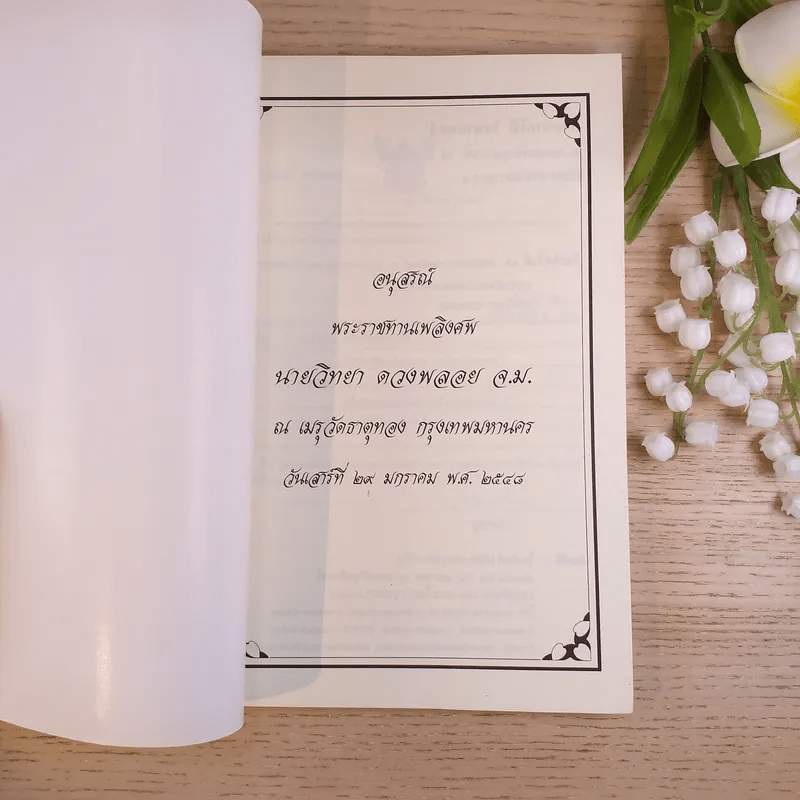 อนุสรณ์
พระราชทานเพลิงศพ
นายวิทยา ดวงพลอย จ.ม.
ณ เมรุวัดธาตุทอง กรุงเทพมหานคร
วันเสาร์ที่ ๒๙ มกราคม พ.ศ. ๒๕๔๘